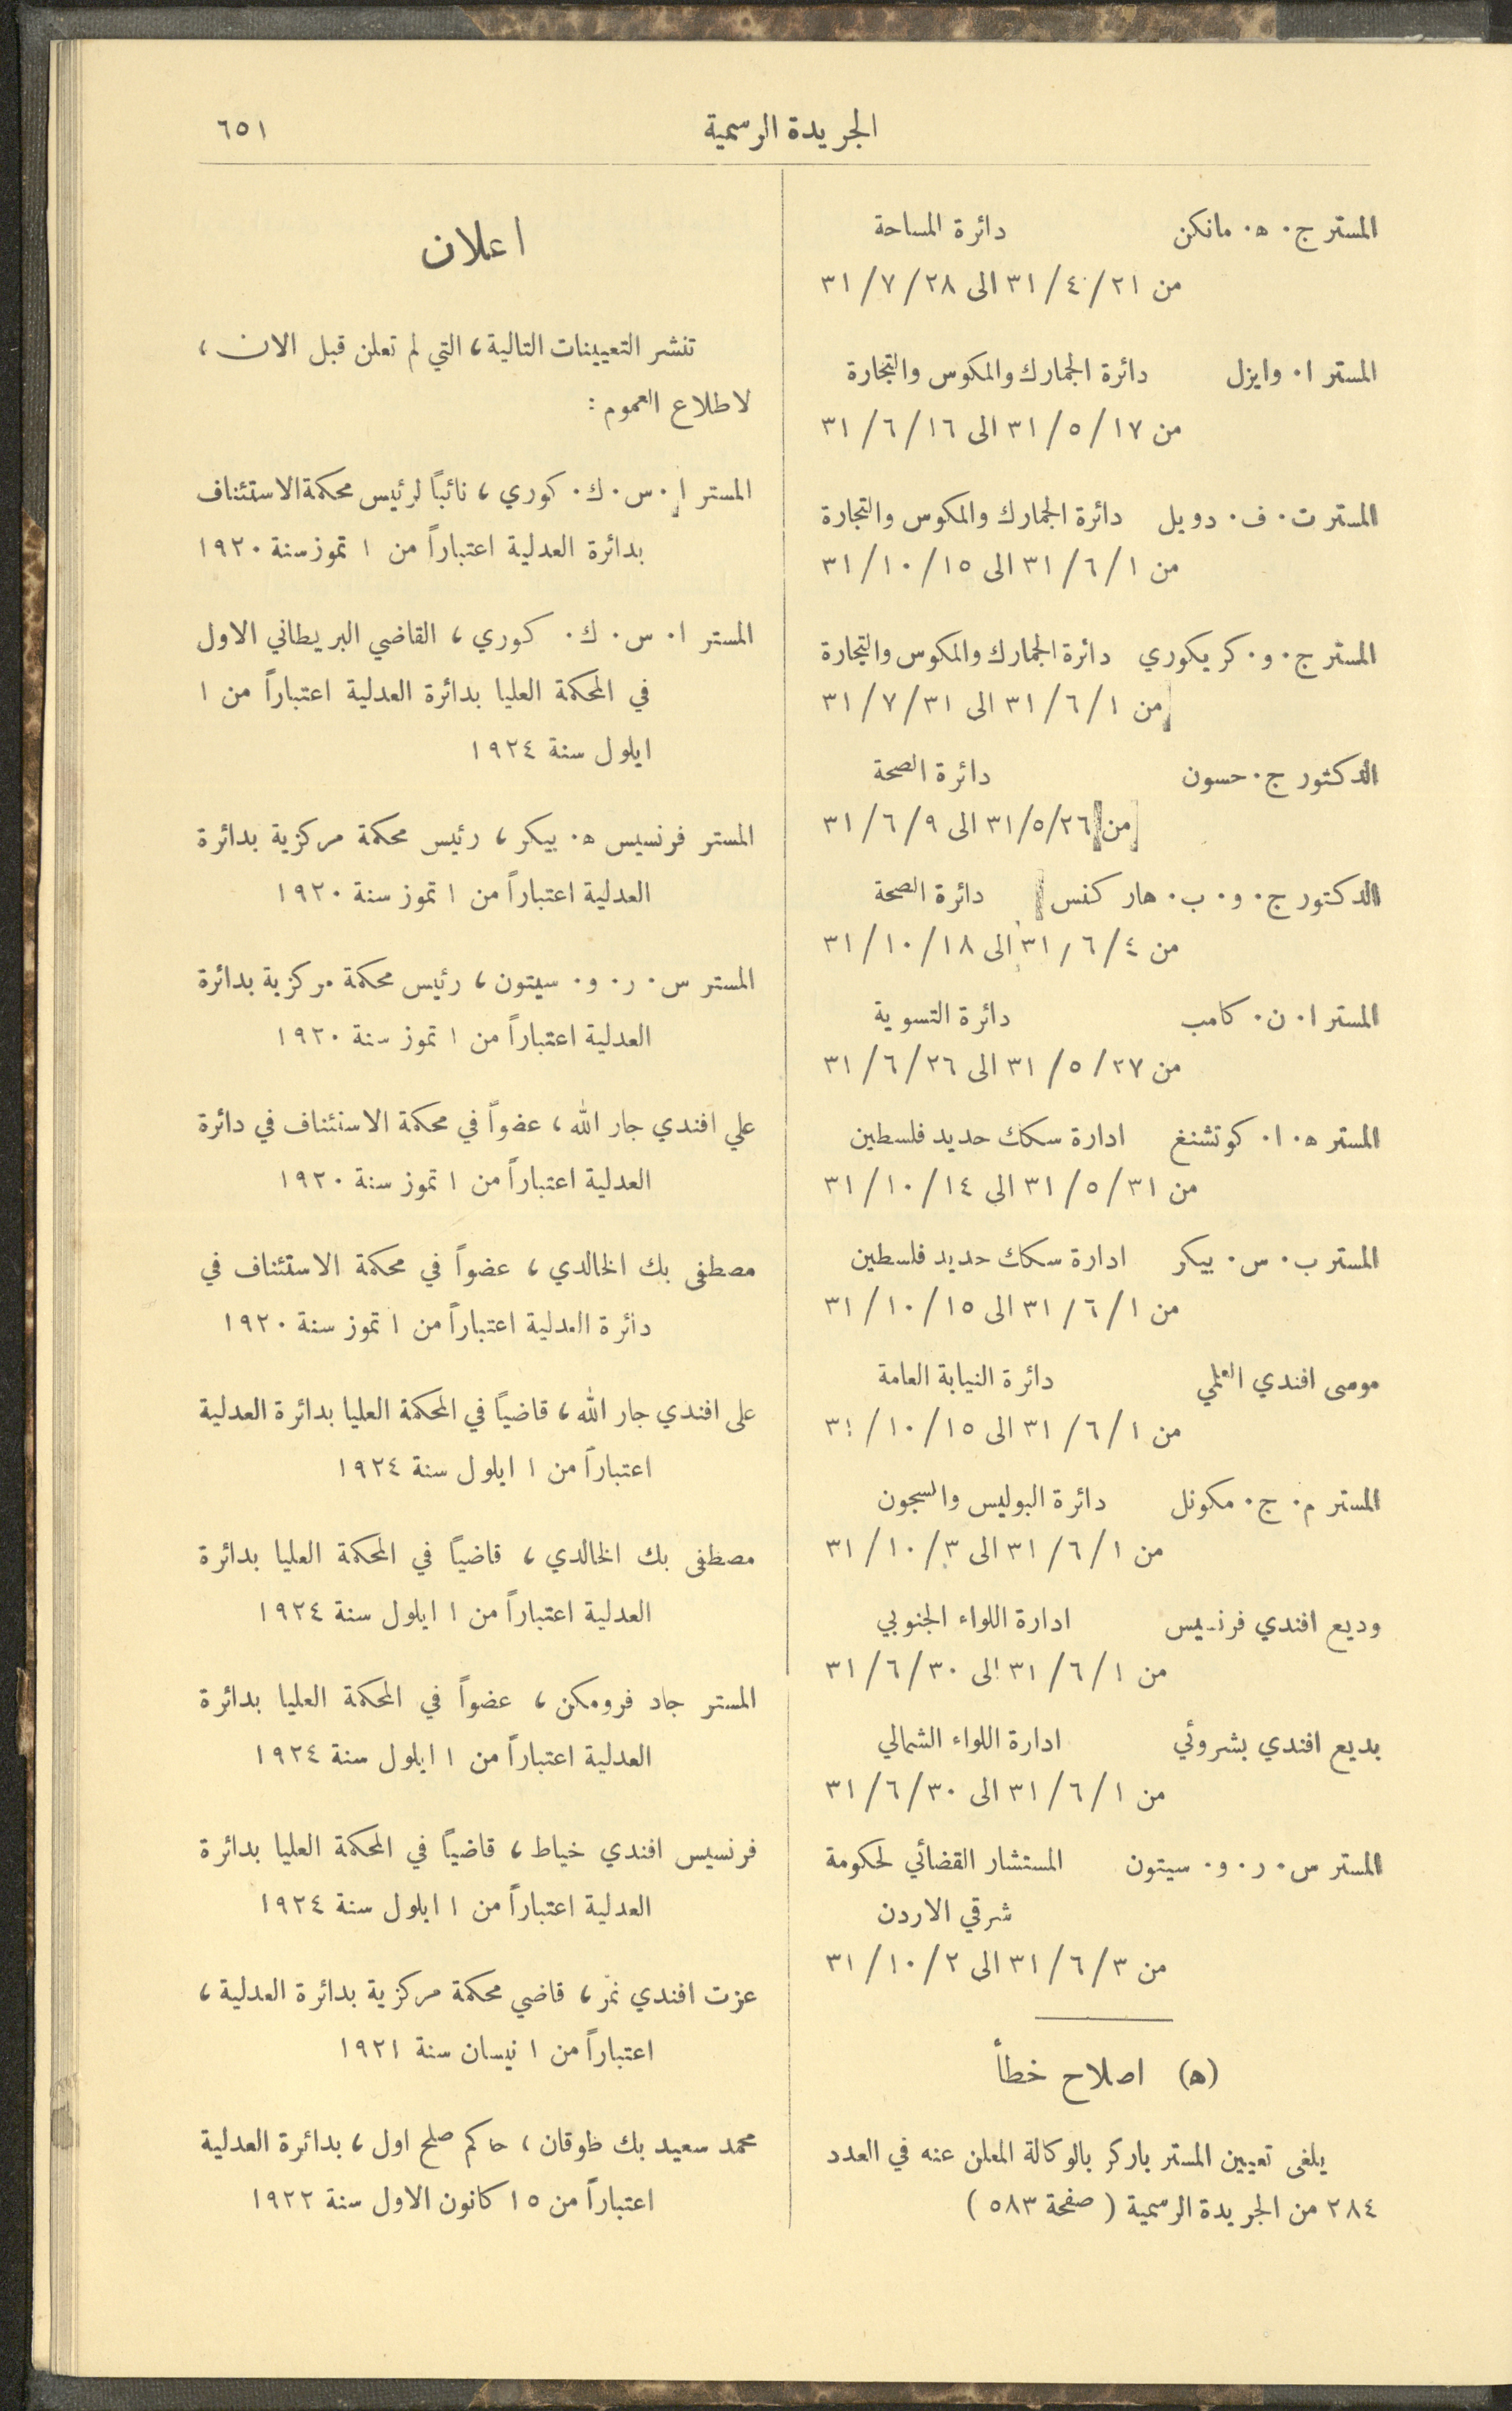 الجريدة الرسمية ٦٥١
المستر ج. ه. مانكن دائرة المساحة
من ٢١/٤/٣١ الى ٢٨/٧/٣١
المستر ا. وايزل دائرة الجمارك والمكوس والتجارة
من ١٧/٥/٣١ الى ١٦/٦/٣١
المستر ت. ف. دويل دائرة الجمارك والمكوس والتجارة
من ١/٦/٣١ الى ١٥/١٠/٣١
المستر ج. و. كريكوري دائرة الجمارك والمكوس والتجارة
من ١/٦/٣١ الى ٣١/٧/٣١
الدكتور ج. حسون دائرة الصحة
من ٢٦/٥/٣١ الى ٩/٦/٣١
الدكتور ج. و. ب. هاركنس دائرة الصحة
من ٤/٦/٣١ الى ١٨/١٠/٣١
المستر ا. ن. كامب دائرة التسوية
من ٢٧/٥/٣١ الى ٢٦/٦/٣١
المستر ه. ا. كوتشنغ ادارة سكك حديد فلسطين
من ٣١/٥/٣١ الى ١٤/١٠/٣١
المستر ب. س. بيكر ادارة سكك حديد فلسطين
من ١/٦/٣١ الى ١٥/١٠/٣١
موسى افندي العلمي دائرة النيابة العامة
من ١/٦/٣١ الى ١٥/١٠/٣١
المستر م. ج. مكونل دائرة البوليس والسجون
من ١/٦/٣١ الى ٣/١٠/٣١
وديع افندي فرنسيس ادارة اللواء الجنوبي
من ١/٦/٣١ الى ٣٠/٦/٣١
بديع افندي بشروئي ادارة اللواء الشمالي
من ١/٦/٣١ الى ٣٠/٦/٣١
المستر س. ر. و. سيتون المستشار القضائي لحكومة
شرقي الاردن
من ٣/٦/٣١ الى ٢/١٠/٣١
(ه) اصلاح خطأ
يلغى تعيين المستر باركر بالوكالة المعلن عنه في العدد
٢٨٤ من الجريدة الرسمية ( صفحة ٥٨٣ )
اعلان
تنشر التعيينات التالية، التي لم تعلن قبل الان،
لاطلاع العموم :
المستر ا. س. ك. كوري، نائباً لرئيس محكمة الاستئناف
بدائرة العدلية اعتباراً من ١ تموز سنة ١٩٢٠
المستر ا. س. ك. كوري، القاضي البريطاني الاول
في المحكمة العليا بدائرة العدلية اعتباراً من ١
ايلول سنة ١٩٢٤
المستر فرنسيس ه. بيكر، رئيس محكمة مركزية بدائرة
العدلية اعتباراً من ١ تموز سنة ١٩٢٠
المستر س. ر. و. سيتون، رئيس محكمة مركزية بدائرة
العدلية اعتباراً من ١ تموز سنة ١٩٢٠
علي افندي جار الله، عضواً في محكمة الاستئناف في دائرة
العدلية اعتباراً من ١ تموز سنة ١٩٢٠
مصطفى بك الخالدي، عضواً في محكمة الاستئناف في
دائرة العدلية اعتباراً من ١ تموز سنة ١٩٢٠
على افندي جار الله، قاضياً في المحكمة العليا بدائرة العدلية
اعتباراً من ١ ايلول سنة ١٩٢٤
مصطفى بك الخالدي، قاضياً في المحكمة العليا بدائرة
العدلية اعتباراً من ١ ايلول سنة ١٩٢٤
المستر جاد فرومكن، عضواً في المحكمة العليا بدائرة
العدلية اعتباراً من ١ ايلول سنة ١٩٢٤
فرنسيس افندي خياط، قاضياً في المحكمة العليا بدائرة
العدلية اعتباراً من ١ ايلول سنة ١٩٢٤
عزت افندي نمر، قاضي محكمة مركزية بدائرة العدلية،
اعتباراً من ١ نيسان سنة ١٩٢١
محمد سعيد بك طوقان، حاكم صلح اول، بدائرة العدلية
اعتباراً من ١٥ كانون الاول سنة ١٩٢٢